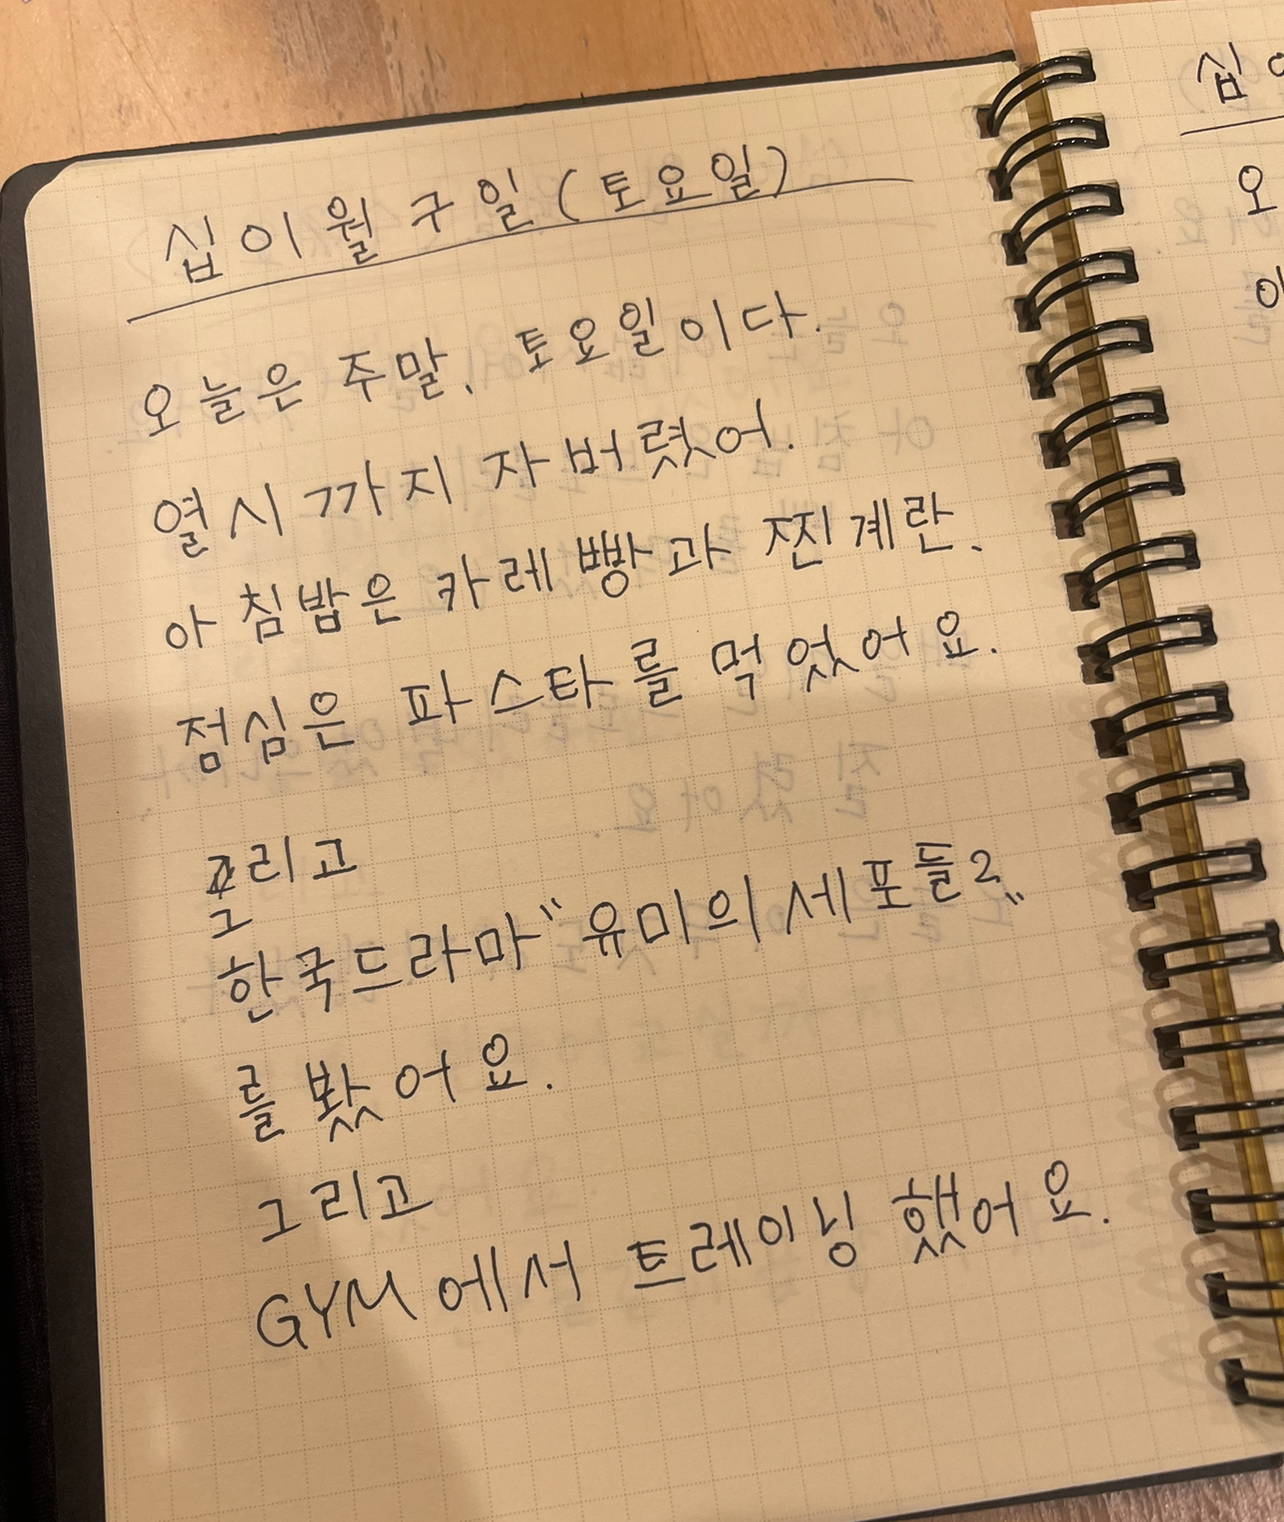 십이월 구일 (토요일)
오늘은 주말, 토요일이다.
열시까지 자버렸어.
아침밥은 카레빵과 찐계란,
점심은 파스타를 먹었어요.
그리고
한국드라마 "유미의 세포들2"
를 봤어요.
그리고
GYM에서 트레이닝 했어요.
십
오
아